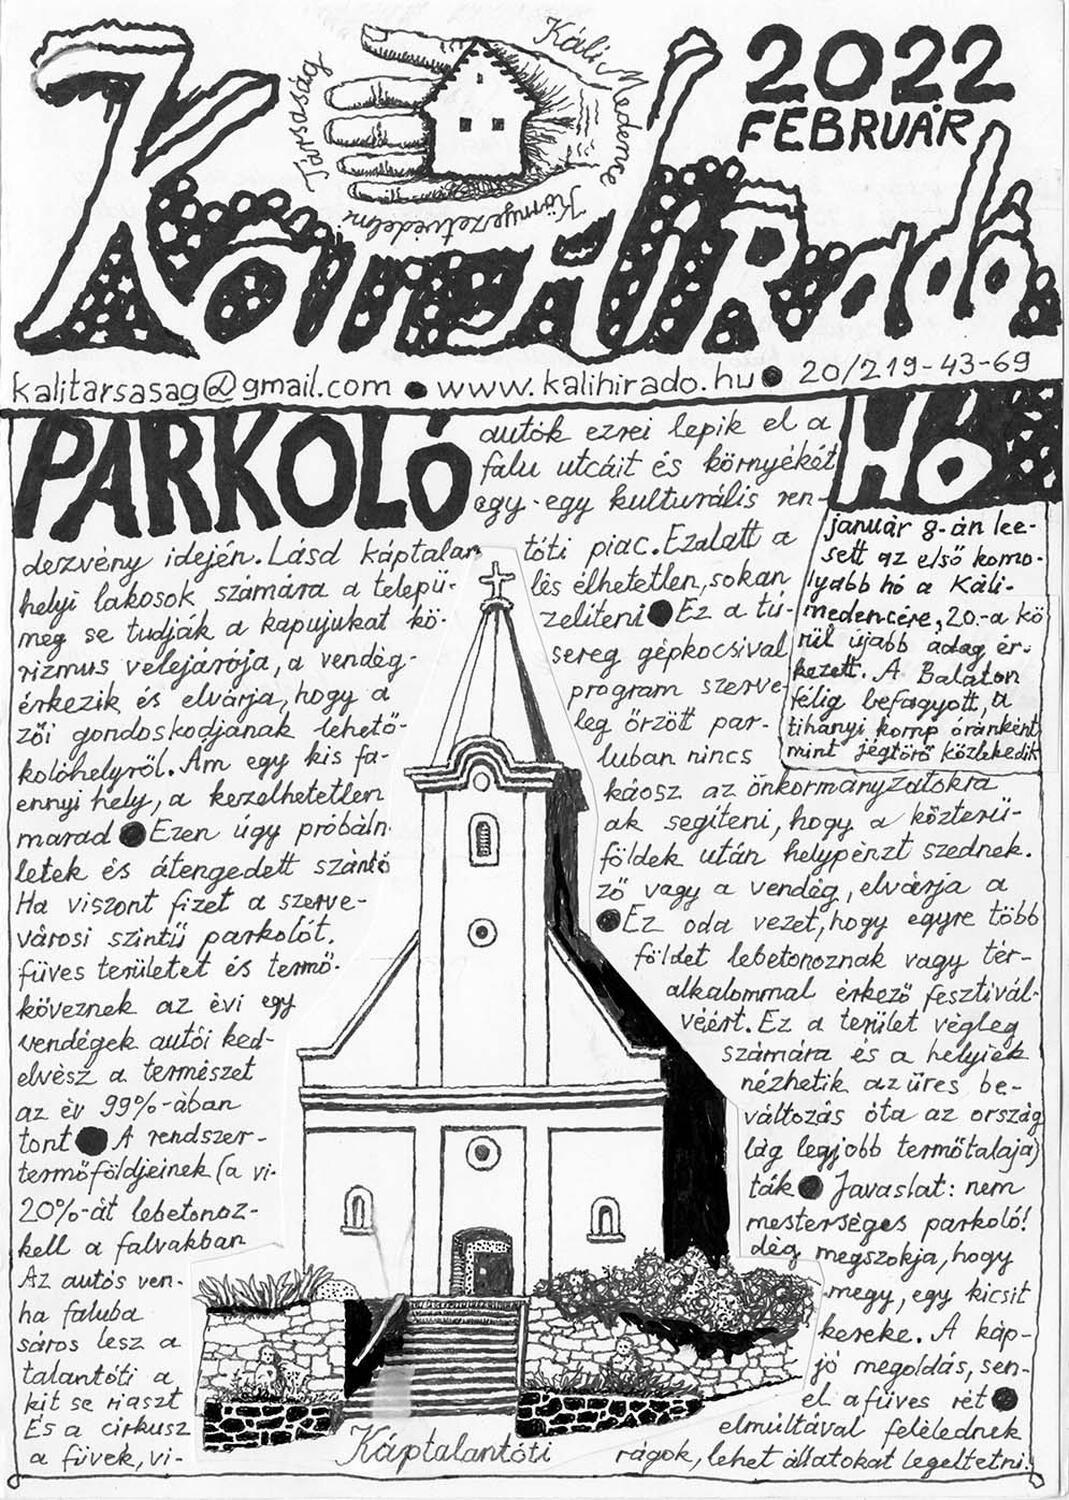 Káli Medence
Környezetvédelmi
Társaság
2022
FEBRUÁR
Környezet HíRadó
kalitarsasag@gmail.com ● www.kalihirado.hu ● 20/219-43-69
PARKOLÓ
autók ezrei lepik el a
falu utcáit és környékét
egy-egy kulturális ren-
dezvény idején. Lásd káptalan tóti piac. Ezalatt a
helyi lakosok számára a telepü- lés élhetetlen, sokan
meg se tudják a kapujukat kö- zelíteni ● Ez a tú-
rizmus velejárója, a vendég- sereg gépkocsival
érkezik és elvárja, hogy a program szerve-
zői gondoskodjanak lehető- leg őrzött par-
kolóhelyről. Ám egy kis fa- luban nincs
ennyi hely, a kezelhetetlen káosz az önkormányzatokra
marad ● Ezen úgy próbáln- ak segíteni, hogy a közterü-
letek és átengedett szántó földek után helypénzt szednek.
Ha viszont fizet a szerve- ző vagy a vendég, elvárja a
városi szintű parkolót. ● Ez oda vezet, hogy egyre több
füves területet és termő- földet lebetonoznak vagy tér-
köveznek az évi egy alkalommal érkező fesztivál-
vendégek autói ked- véért. Ez a terület végleg
elvész a természet számára és a helyiek
az év 99%-ában nézhetik az üres be-
tont ● A rendszer- változás óta az ország
termőföldjeinek (a vi- lág legjobb termőtalaja)
20%-át lebetonoz- ták ● Javaslat: nem
kell a falvakban mesterséges parkoló!
Az autós ven- dég megszokja, hogy
ha faluba megy, egy kicsit
sáros lesz a kereke. A káp-
talantóti a jó megoldás, sen-
kit se riaszt el a füves rét ●
És a cirkusz elmúltával felélednek
a füvek, vi- rágok, lehet állatokat legeltetni.
HÓ
január 8-án lee-
sett az első komo-
lyabb hó a Káli-
medencére, 20.-a kö
rül újabb adag ér-
kezett. A Balaton
félig befagyott, a
tihanyi komp óránként
mint jégtörő közlekedik
Káptalantóti